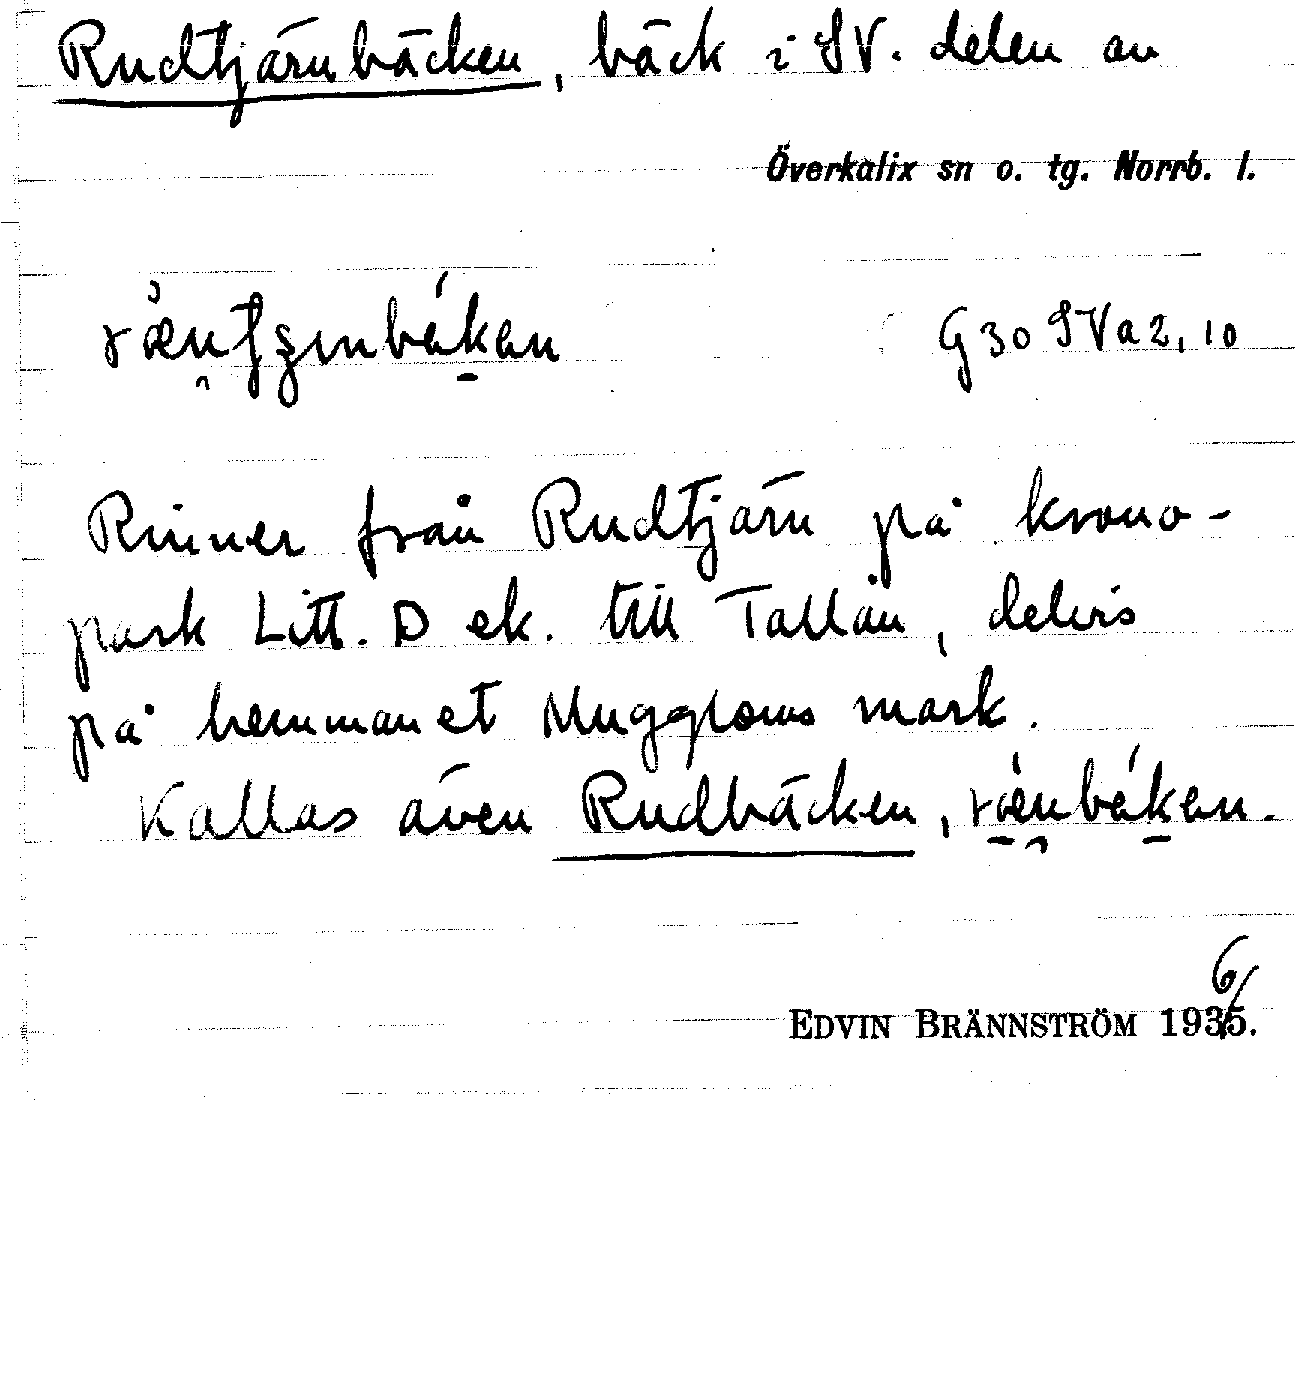 Rudtjärnbäcken, bäck i SV. delen av
Överkalix sn o. tg. Norrb. l.
G 30 SVa2, 10
Rinner från Rudtjärn på krono-
park Litt. D ek. till Tallån, delvis
på hemmanet mark.
Kallas även Rudbäcken,
6/
EDVIN BRÄNNSTRÖM 1935.